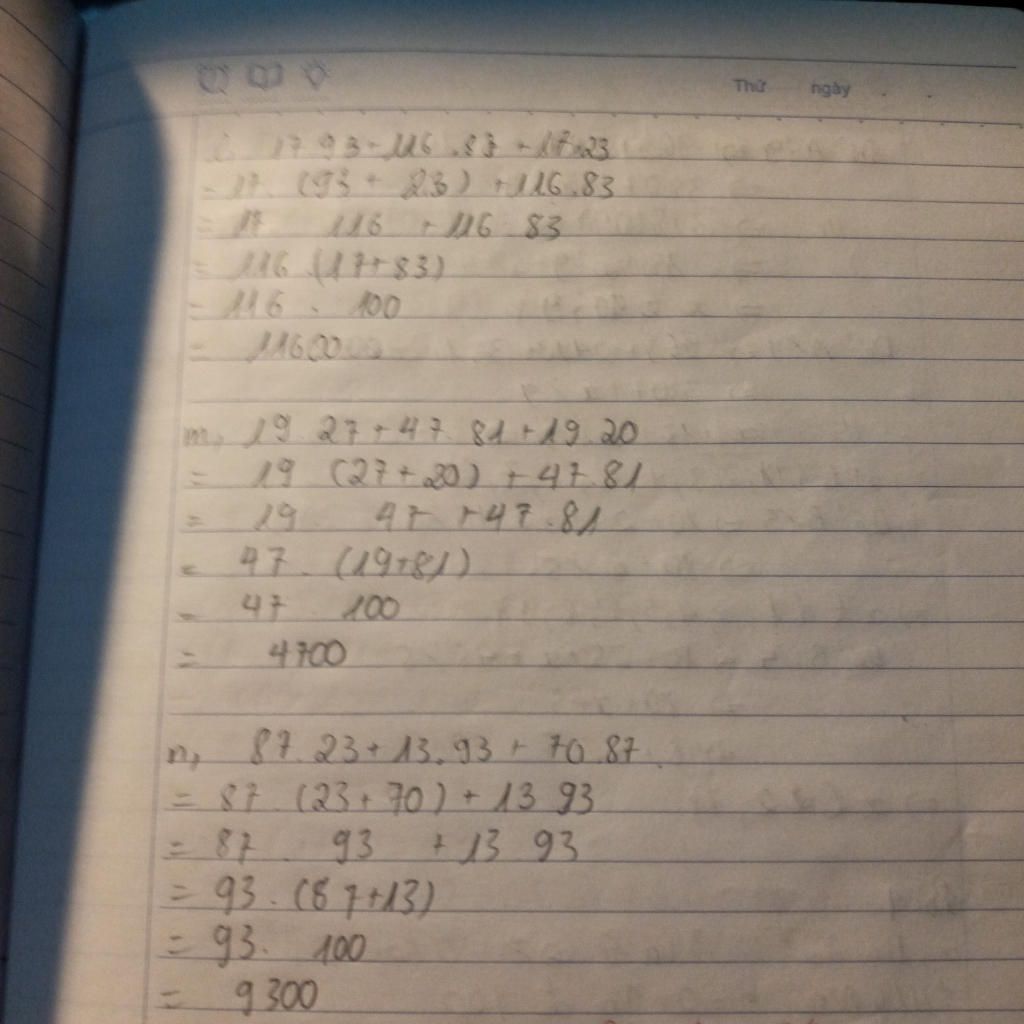 Thứ ngày
i, 17 93 + 116 . 83 + 17.23
= 17. (93 + 23) + 116.83
= 17 116 + 116 83
= 116 (17+83)
= 116 . 100
= 11600
m, 19 27 + 47 81 + 19.20
= 19 (27+20) + 47.81
= 19 47 + 47.81
= 47 . (19+81)
= 47 100
= 4700
n, 87.23 + 13.93 + 70.87
= 87 (23+70) + 13 93
= 87 . 93 + 13 93
= 93 . (87+13)
= 93. 100
= 9300